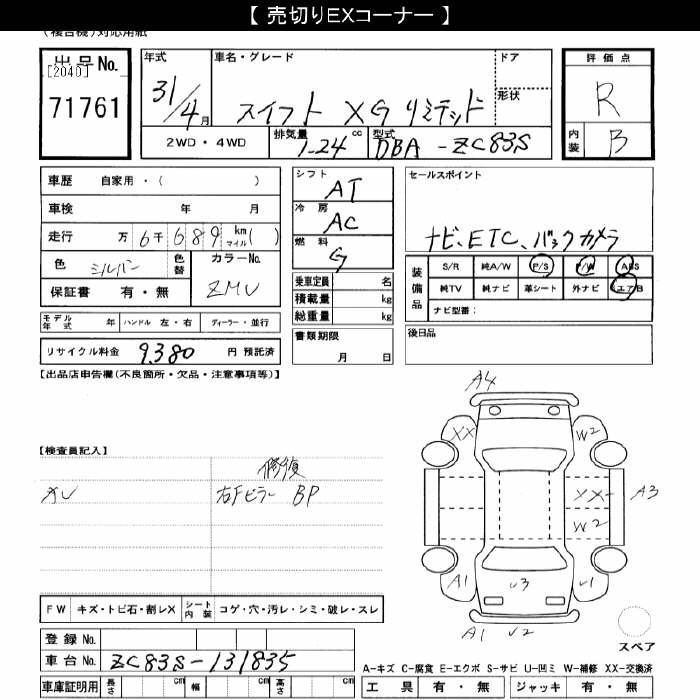 【 売切りEXコーナー 】
(複合機)対応用紙
出品No.
[2040]
71761
年式
31/4月
車名・グレード
スイフト XG リミテッド
ドア
形状
評価点
R
内装
B
2WD・4WD
排気量
1.24 cc
型式
DBA - ZC83S
車歴 自家用・( )
車検 年 月
走行 万 6千 689 km マイル( )
色 シルバー
色替
カラーNo.
ZMV
保証書 有・無
モデル年式 年 ハンドル 左・右 ディーラー・並行
リサイクル料金 9,380 円 預託済
シフト
AT
冷房
AC
燃料
G
乗車定員 名
積載量 kg
総重量 kg
書類期限
月 日
セールスポイント
ナビ、ETC、バックカメラ
装備品
S/R 純A/W P/S P/W ABS
純TV 純ナビ 革シート 外ナビ エアB
ナビ型番:
後日品
【出品店申告欄(不良箇所・欠品・注意事項等)】
【検査員記入】
修復
右Fピラー BP
A4
XX W2
XX A3
W2
A1 U3 U1
A1 U2
スペア
FW キズ・トビ石・割レX シート内装 コゲ・穴・汚レ・シミ・破レ・スレ
登録No.
車台No. ZC83S-131835
車庫証明用 長さ cm 幅 cm 高さ cm
A-キズ C-腐食 E-エクボ S-サビ U-凹ミ W-補修 XX-交換済
工具 有・無 ジャッキ 有・無